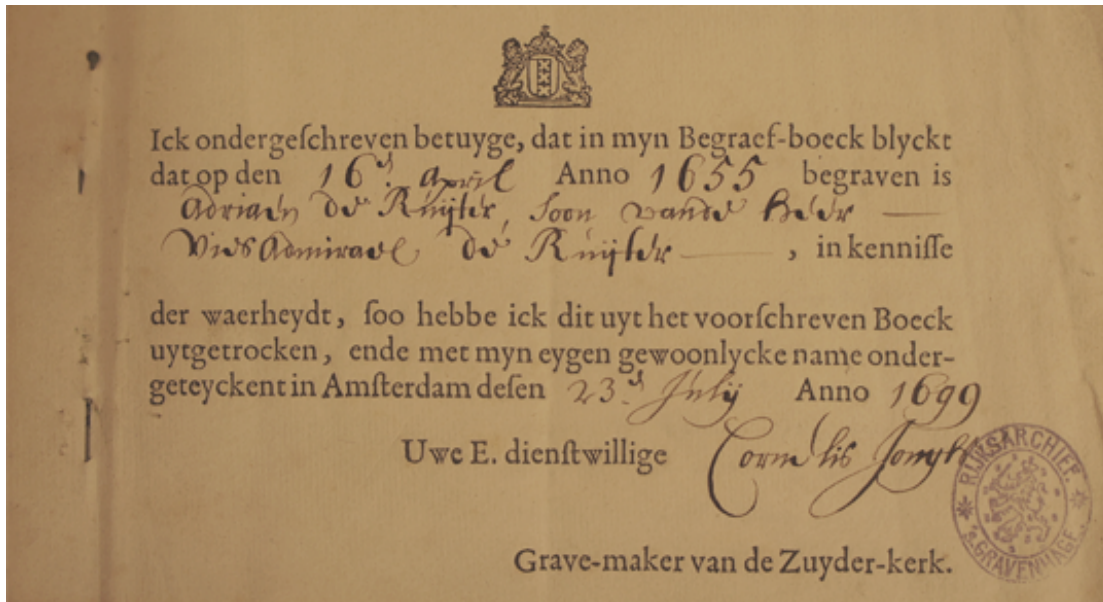 Ick ondergeschreven betuyge, dat in myn Begraef-boeck blyckt
dat op den 16.d April Anno 1655 begraven is
Adriaen de Ruijter, soon vande Heer
Vies Admirael de Ruijter, in kennisse
der waerheydt, soo hebbe ick dit uyt het voorschreven Boeck
uytgetrocken, ende met myn eygen gewoonlycke name onder-
geteyckent in Amsterdam desen 23.d July Anno 1699
Uwe E. dienstwillige Cornelis
Grave-maker van de Zuyder-kerk.
RIJKSARCHIEF
'S-GRAVENHAGE